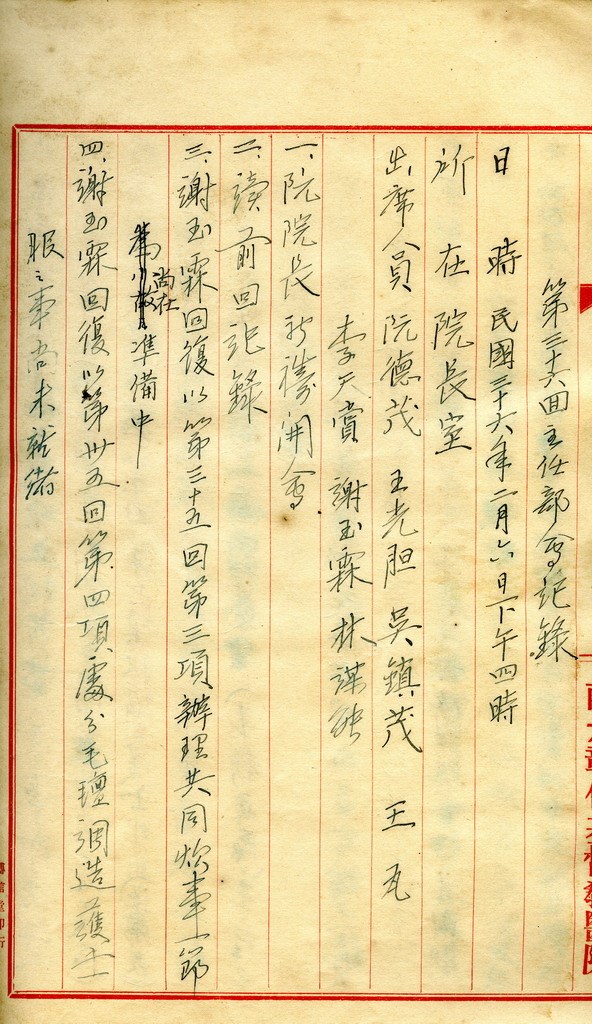 第三十六回主任部會記錄
日 時 民國三十六年二月六日下午四時
所 在 院長室
出席人員 阮德茂 王光胆 吳鎮茂 王 瓦
李天賞 謝玉霖 林謀
一、阮院長祈禱開會
二、讀前回記錄
三、謝玉霖回復以第三十五回第三項辦理共同炊事一節
尚在
準備中
四、謝玉霖回復以第卅五回第四項處分毛壇調造護士
服之事尚未就緒